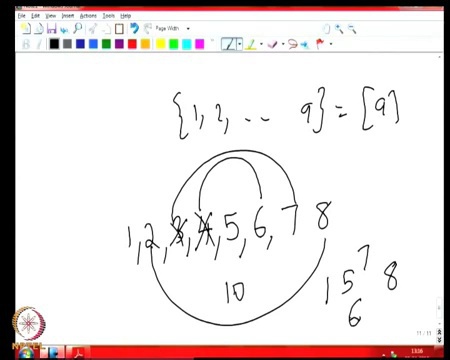 File Edit View Insert Actions Tools Help
Page Width
{1, 2, .. 9} = [9]
1, 2, 3, 4, 5, 6, 7 8
10
1 5 7 8
6
11 / 11
13:55